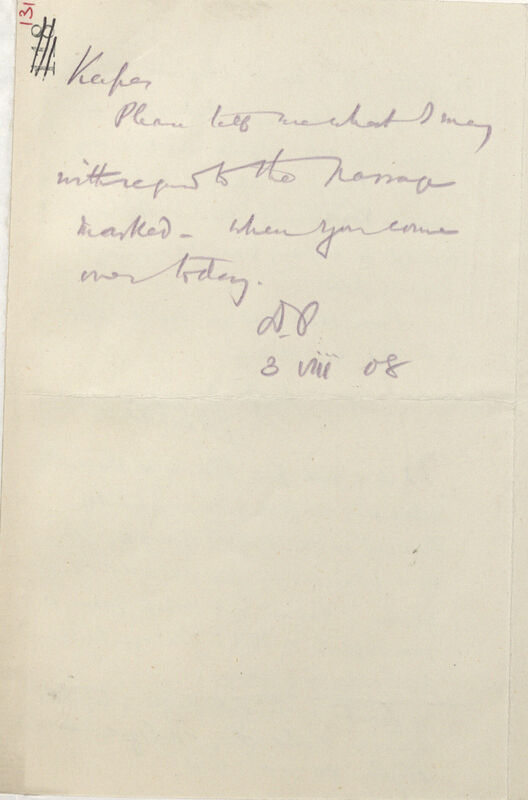 131
118
Keeper
Please tell me what I may
with regard to the passage
marked - when you come
over today.
D.P
3 viii 08